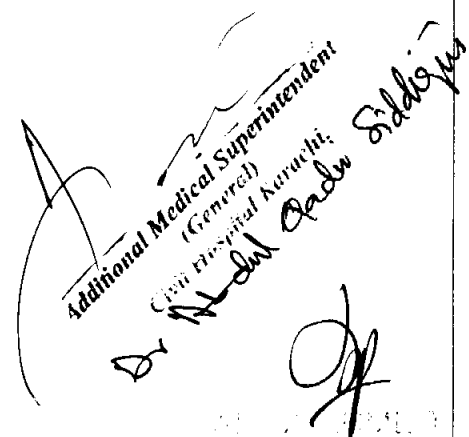 Additional Medical Superintendent
(General)
Civil Hospital Karachi.
Dr Abdul Qadir Siddiqui